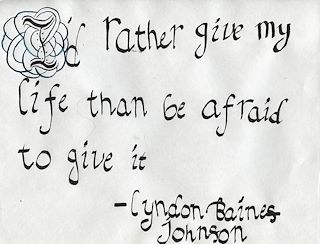 I'd rather give my
life than be afraid
to give it
-Lyndon Baines
Johnson